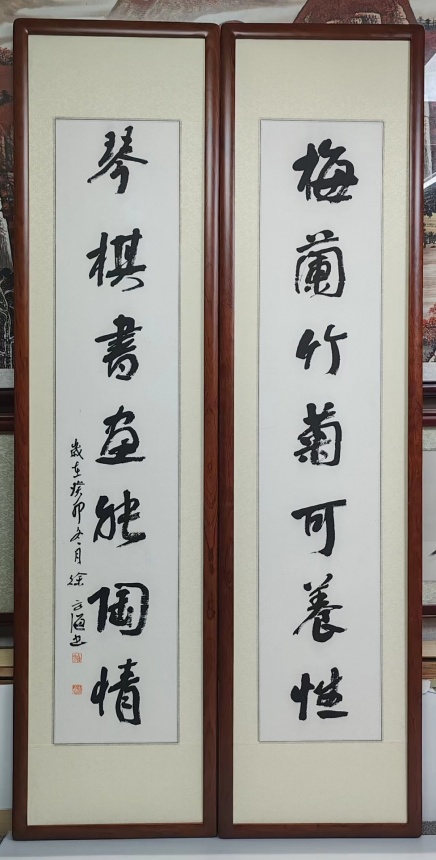 梅蘭竹菊可養性
琴棋書画能陶情
歲在癸卯冬月徐方海书